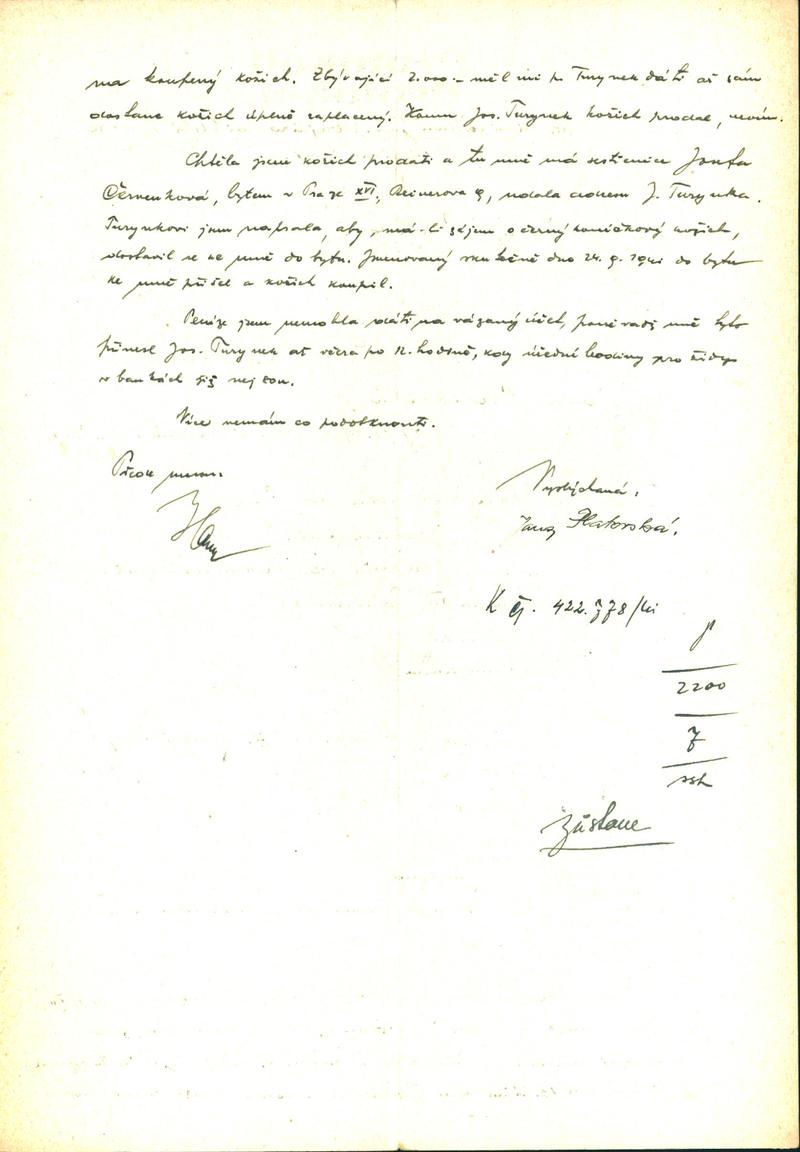 na koupený kožich. Zbývající 2.000.- měl mi p. Turynek dáti až sám
dostane kožich úplně zaplacený. Komu Jos. Turynek kožich prodal, nevím.
Chtěla jsem kožich prodati a tu mně má sestřenice Josefa
Červenková, bytem v Praze XVI., Reinerova 9, udala adresu J. Turynka.
Turynkovi jsem napsala, aby, má-li zájem o černý koničkový kožich,
dostavil se ke mně do bytu. Jmenovaný skutečně dne 24. 9. 1941 do bytu
ke mně přišel a kožich koupil.
Peníze jsem nemohla dáti na vázaný účet, poněvadž mně bylo
přinesl Jos. Turynek až včera po 12. hodině, kdy úřední hodiny pro židy
v bankách již nejsou.
Více nemám co podotknouti.
Přede mnou:
Vyslýchaná:
K čj. 422.778/41
2200
7
zůstane